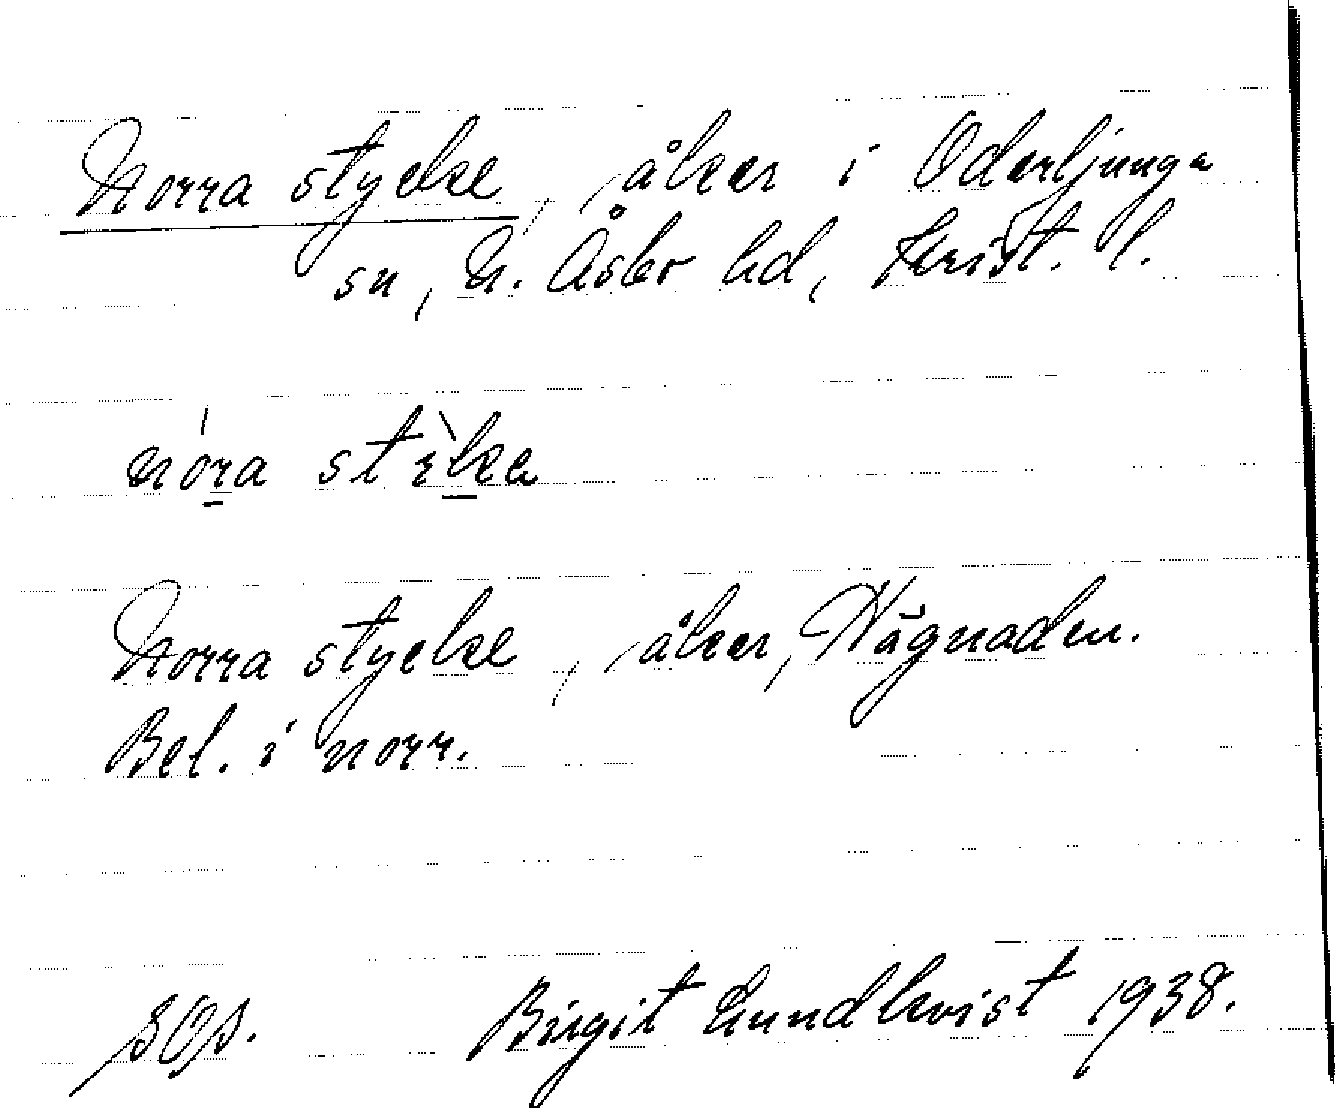 Norra stycke, åker i Oderljunga
sn, N. Åsbo hd, Krist. l.
nóra stìka
Norra stycke, åker, Hägnaden.
Bel. i norr.
Birgit Lundkvist 1938.